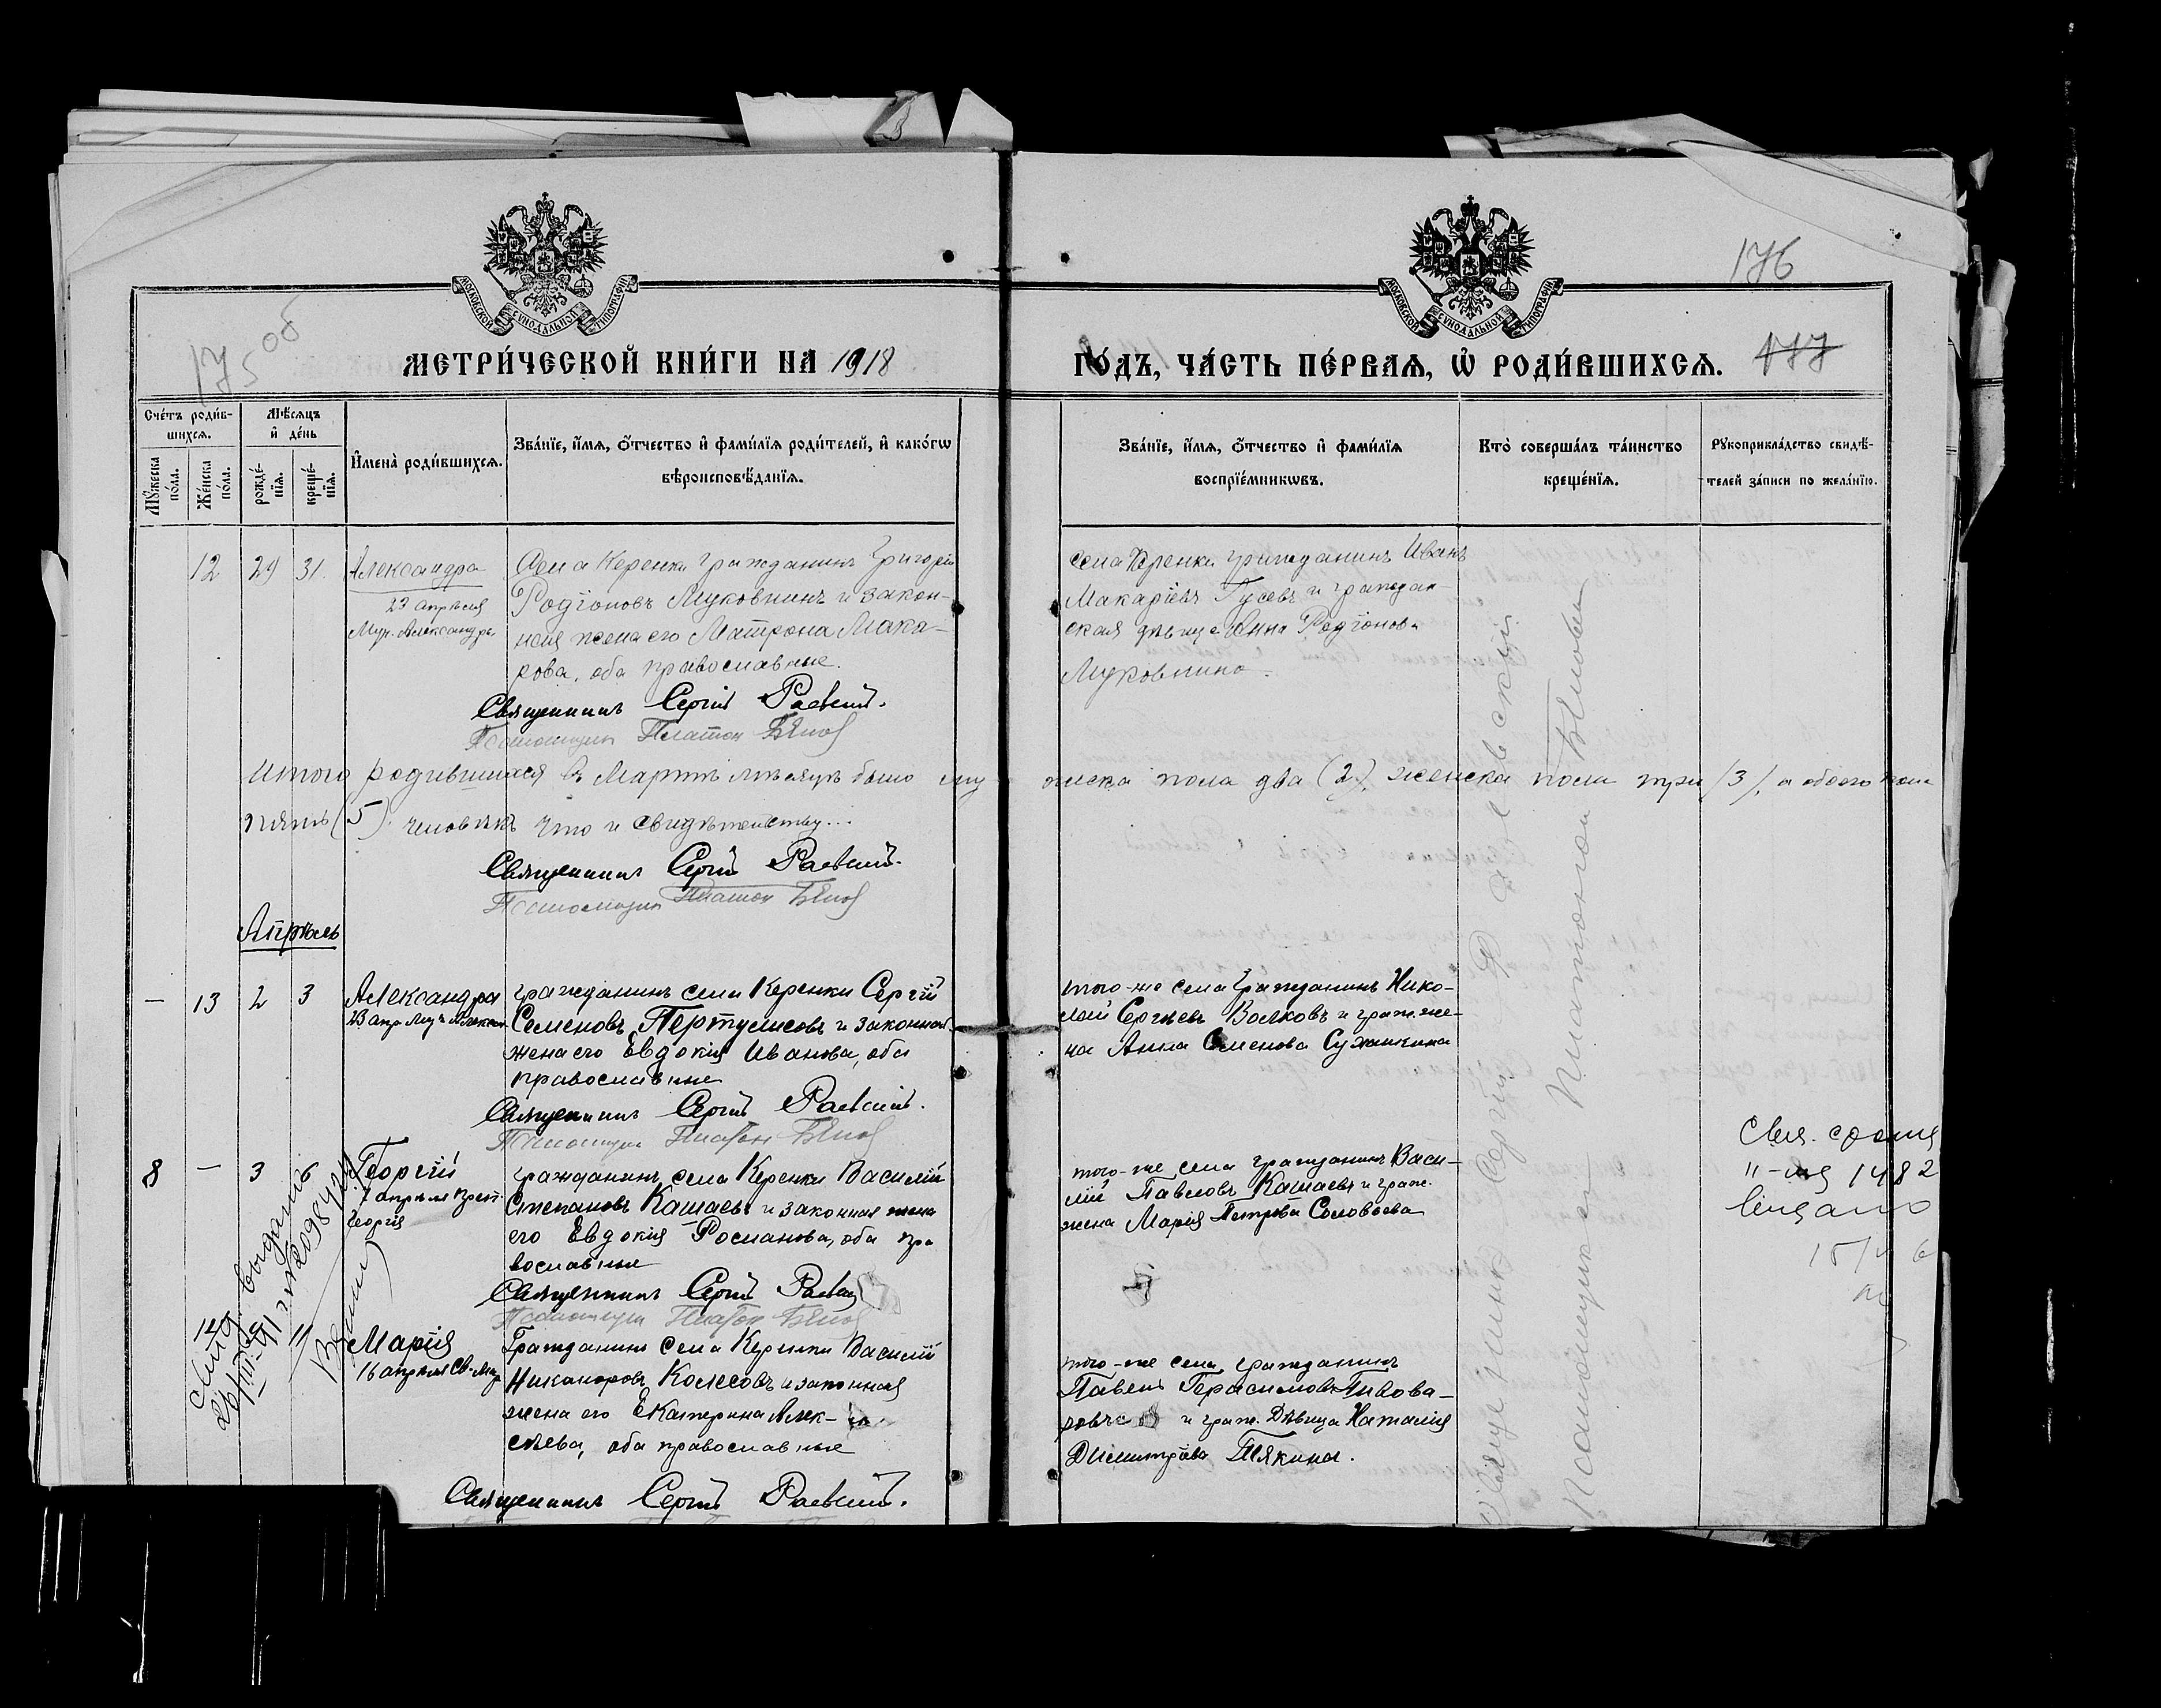 МОСКОВСКОЙ СѴНОДАЛЬНОЙ ТИПОГРАФІИ
МОСКОВСКОЙ СѴНОДАЛЬНОЙ ТИПОГРАФІИ
176
175 об
МЕТРИ́ЧЕСКОЙ КНИ́ГИ НА 1918
ГО́ДЪ, ЧА́СТЬ ПЕ́РВАѦ, Ѡ҆ РОДИ́ВШИХСѦ.
177
Сче́тъ роди́в-
шихсѧ.
Мѣ́сѧцъ
и҆ де́нь
Мꙋ́жеска
по́ла.
Же́нска
по́ла.
рожде́-
нїѧ.
креще́-
нїѧ.
И҆мена̀ роди́вшихсѧ.
Зва́нїе, и҆́мѧ, ѻ҆́тчество и҆ фами́лїѧ роди́телей, и҆ како́гѡ
вѣроисповѣ́данїѧ.
Зва́нїе, и҆́мѧ, ѻ҆́тчество и҆ фами́лїѧ
воспрїе́мникѡвъ.
Кто̀ соверша́лъ та́инство
креще́нїѧ.
Рꙋкоприкла́дство свидѣ́-
телей за́писи по жела́нїю.
12 29 31. Александра
23 апрѣля
Муч. Александры
Села Керенки гражданинъ Григорій
Родіоновъ Муковнинъ и закон-
ная жена его Матрона Мака-
рова, оба православные.
Священникъ Сергій Раевскій.
Псаломщикъ Платон Бѣлов
села Керенки гражданинъ Иванъ
Макаріевъ Гусевъ и граждан-
ская дѣвица Анна Родіонова
Муковнина.
Итого родившихся въ Мартѣ мѣсяцѣ было му жеска пола два (2), женска пола три (3), а обоего пола
пять (5) человѣкъ что и свидѣтельству...
Священникъ Сергій Раевскій.
Псаломщикъ Платон Бѣлов
Апрѣль
— 13 2 3 Александра
23 апр муч Алексан.
гражданинъ села Керенки Сергій
Семеновъ Пертулисовъ и законная
жена его Евдокія Иванова, оба
православные
Священникъ Сергій Раевскій.
Псаломщикъ Платон Бѣлов
того-же села гражданинъ Нико-
лай Сергѣевъ Волковъ и граж. же-
на Анна Семенова Суханкина
8 — 3 6 Георгій
7 апрѣля преп.
Георгія
гражданинъ села Керенки Василій
Степановъ Кашаевъ и законная жена
его Евдокія Романова, оба пра
вославные
Священникъ Сергій Раевск
Псаломщикъ Платон Бѣлов
того-же села гражданинъ Васи-
лій Павловъ Кашаевъ и граж.
жена Марія Петрова Соловьева
1482
14
Марія
16 апрѣля Св. Муч
Гражданинъ села Керенки Василій
Никаноровъ Колесовъ и законная
жена его Екатерина Алек-
сѣева, оба православные
Священникъ Сергій Раевскій.
того-же села, гражданинъ
Павелъ Герасимовъ Пивова-
ровъ и граж. дѣвица Наталія
Димитріева Тлякина.
Священникъ Сергій Раевскій
Псаломщикъ Платонъ Бѣловъ